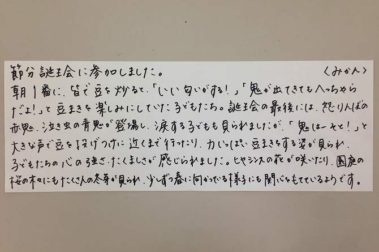 節分誕生会に参加しました。 〈みかん〉
朝1番に、皆で豆を炒ると、「いい匂いがする！」「鬼が出てきてもへっちゃら
だよ！」と豆まきを楽しみにしていた子どもたち。誕生会の最後には、怒りんぼの
赤鬼、泣き虫の青鬼が登場し、涙する子どもも見られましたが、「鬼は～そと！」と
大きな声で豆を投げつけに近くまで行ったり、力いっぱい豆まきをする姿が見られ、
子どもたちの心の強さ、たくましさが感じられました。ヒヤシンスの花が咲いたり、園庭の
桜の木にもたくさんの冬芽が見られ、少しずつ春に向かっている様子にも関心をもてているようです。